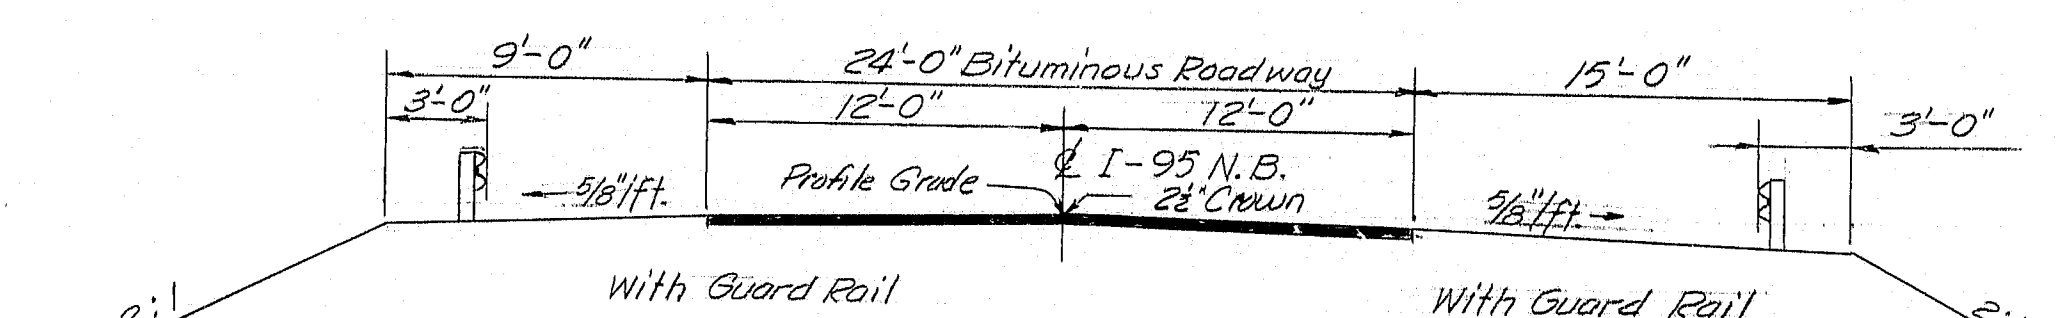 9'-0"
24'-0" Bituminous Roadway
15'-0"
3'-0"
12'-0"
12'-0"
3'-0"
℄ I-95 N.B.
Profile Grade
2½" Crown
5/8"/ft.
5/8"/ft.
With Guard Rail
With Guard Rail